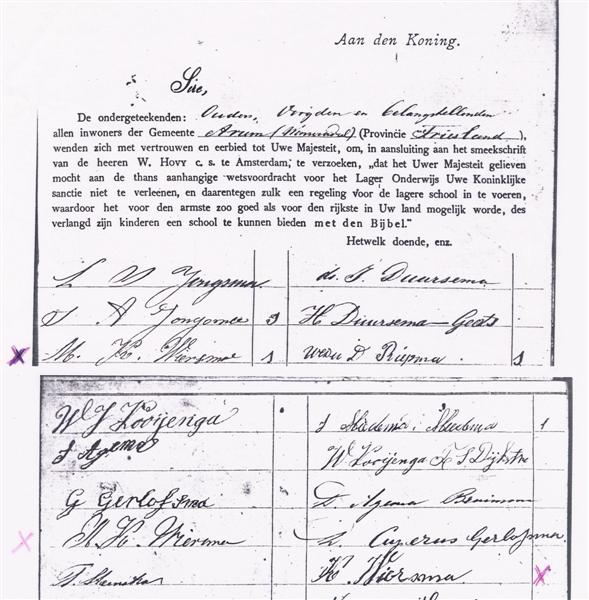 Aan den Koning.
Sire,
De ondergeteekenden: Ouders, Voogden en belangstellenden
allen inwoners der Gemeente Arum (Wonseradeel) (Provincie Friesland),
wenden zich met vertrouwen en eerbied tot Uwe Majesteit, om, in aansluiting aan het smeekschrift
van de heeren W. Hovy c. s. te Amsterdam, te verzoeken, „dat het Uwer Majesteit gelieven
mocht aan de thans aanhangige wetsvoordracht voor het Lager Onderwijs Uwe Koninklijke
sanctie niet te verleenen, en daarentegen zulk een regeling voor de lagere school in te voeren,
waardoor het voor den armste zoo goed als voor den rijkste in Uw land mogelijk worde, des
verlangd zijn kinderen een school te kunnen bieden met den Bijbel."
Hetwelk doende, enz.
Jongsma ds. J. Duursema
A Jongsma H Duursema—Geets
M. K. Wiersma D Riepma
W J Kooijenga
Agema W Kooijenga K S Dijkstra
G Gerlofsma Agema
K. Wiersma Cuperus Gerlofsma
K Wiersma